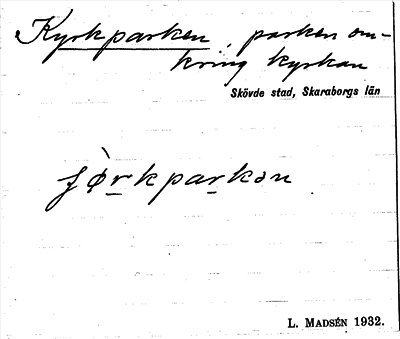 Kyrkparken, parken om-
kring kyrkan
Skövde stad, Skaraborgs län
L. MADSÉN 1932.